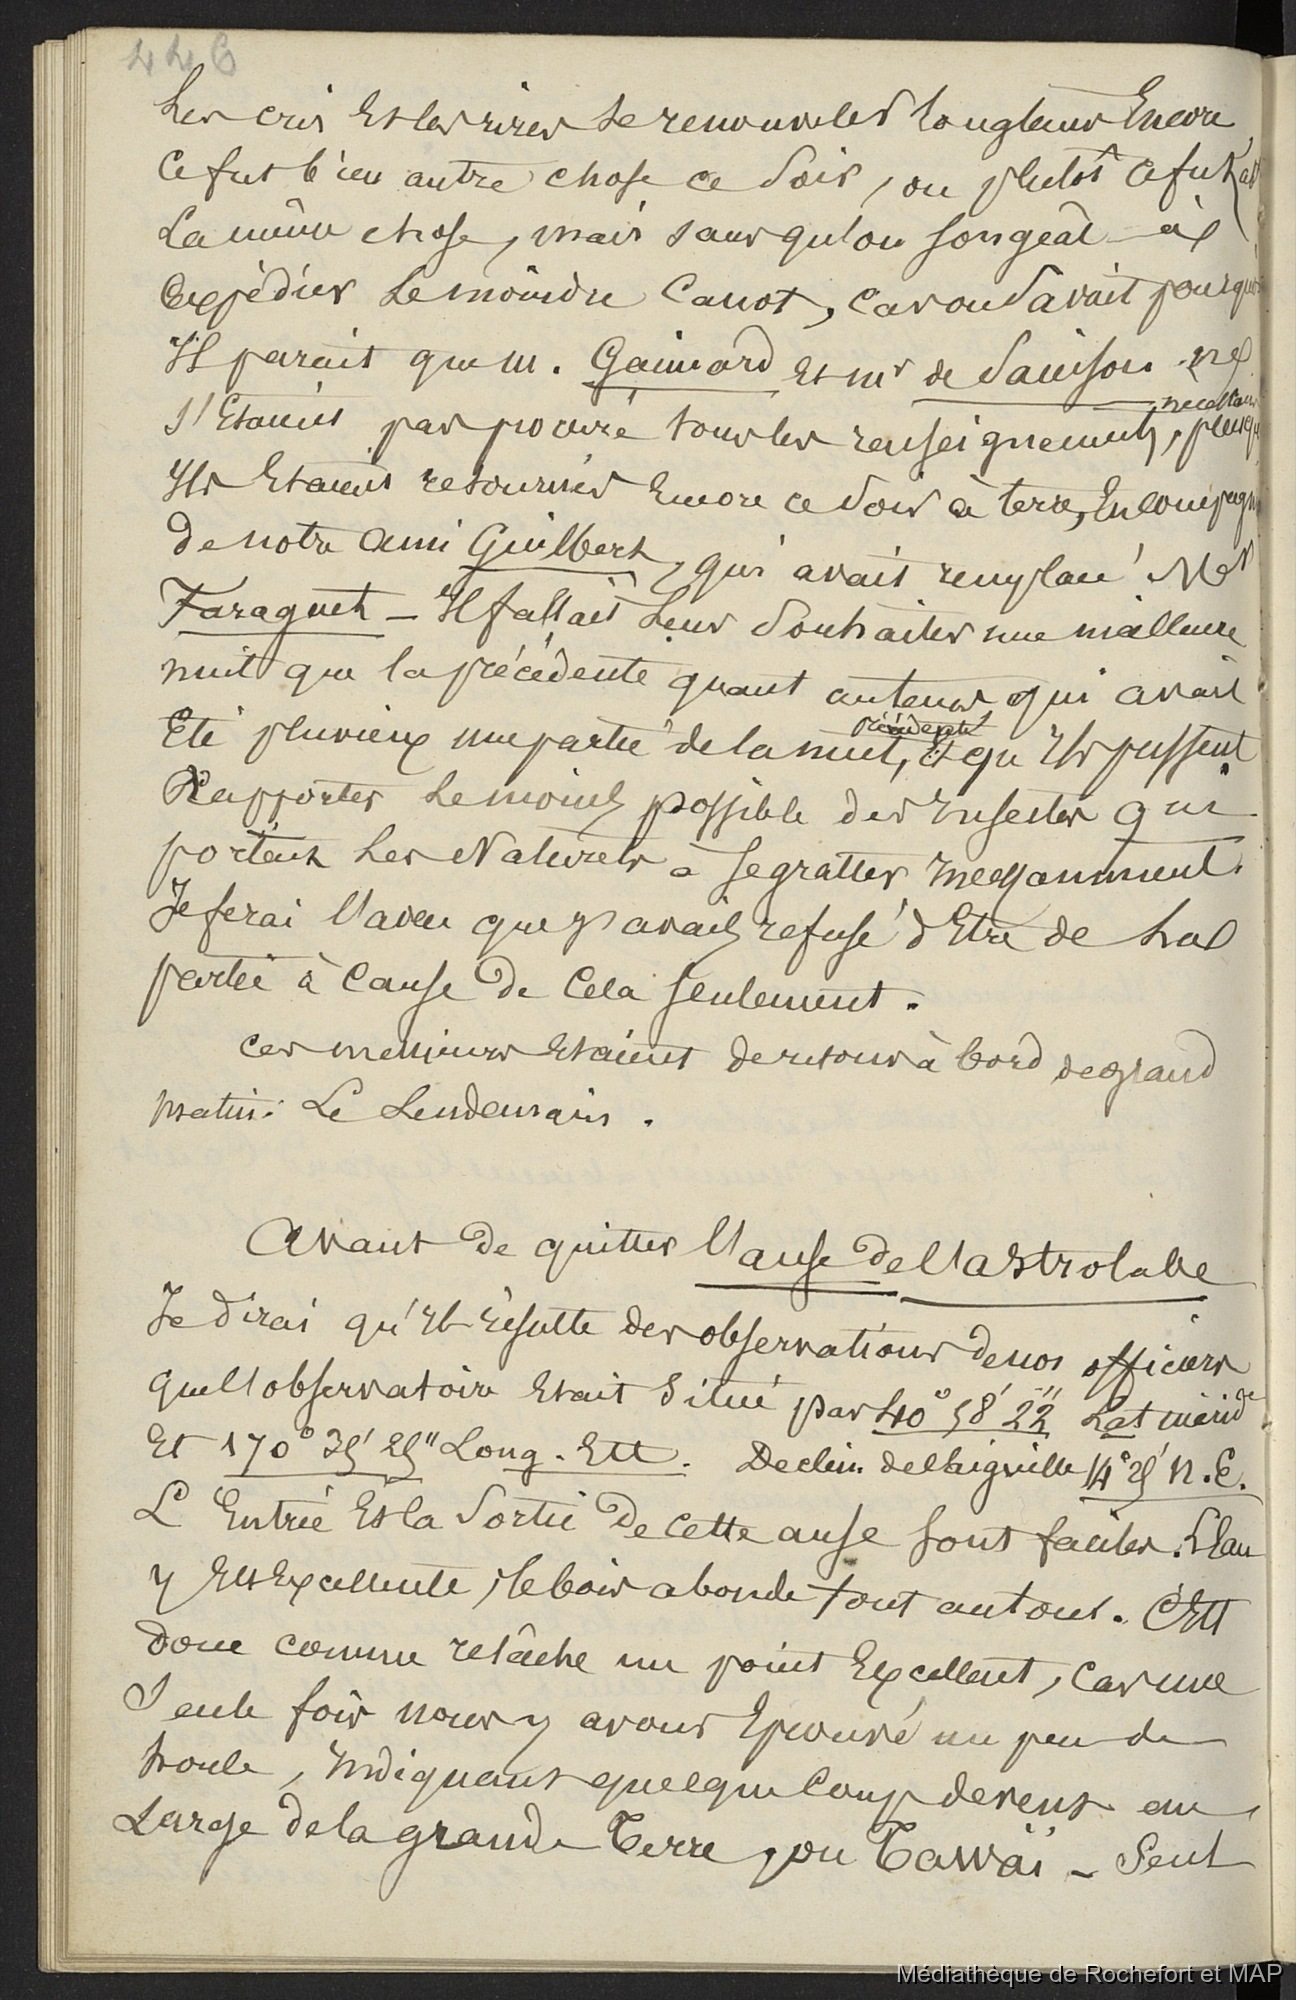 446
Les cris Et les rires se renouveler longtems Encore
Ce fut bien autre chose ce Soir, ou plutôt Ce fut
La même chose, mais sans qu'on songeât à
Expédier Le moindre Canot, Car on Savait pourquoi
Il parait que M. Gaimard Et Mr de Sainson ne
S'Etaient pas procuré tous les renseignements,
Ils Etaient retournés Encore ce Soir à terre, En compagnie
de notre ami Guilbert, qui avait remplacé Mr
Faraguet — Il fallait Leur Souhaiter une meilleure
nuit que la précédente quant au tems, qui avait
Eté pluvieux une partie de la nuit précédente, Et qu'Ils pussent
Rapporter Le moins possible des Insectes qui
portent Les Naturels à se gratter Incessamment.
Je ferai l'aveu que j'avais refusé d'Etre de La
partie à Cause de Cela seulement.
Ces messieurs Etaient de retour à bord de grand
matin Le Lendemain.
Avant de quitter l'anse de l'astrolabe
Je dirai qu'Il résulte des observations de nos officiers
que l'observatoire Etait Situé par 40° 58' 22" Lat mérid
Et 170° 35' 25" Long. Est. Declin. de l'aiguille 14° 25' N.E.
L'Entrée Et la Sortie De Cette anse sont faciles. L'Eau
y Est Excellente, le bois abonde tout autour. C'Est
donc comme relâche un point Excellent, car une
Seule fois nous y avons Eprouvé un peu de
houle, Indiquant quelque Coup de vent au
Large de la grande Terre, ou Tawaï — Seul
Médiathèque de Rochefort et MAP